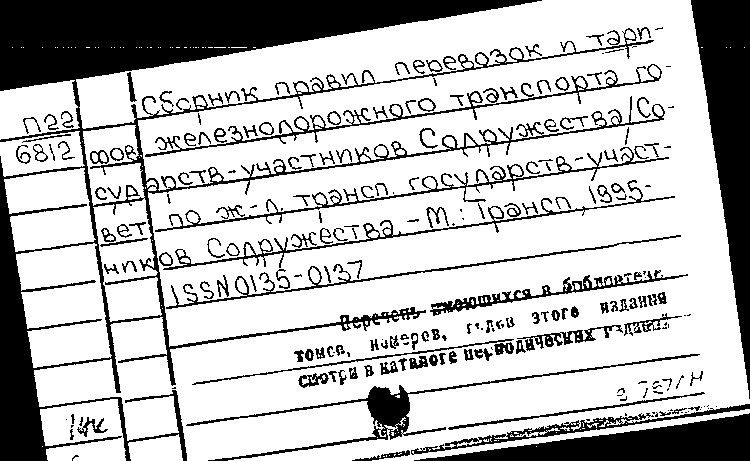 Сборник правил перевозок и тари-
П22
6812
фов железнодорожного транспорта го-
сударств-участников Содружества/Со-
вет по ж-д. трансп. государств-участ-
ников Содружества. - М.: Трансп., 1995-
ISSN 0135-0137
Перечень имеющихся в библиотеке
томов, номеров, годов этого издания
смотри в каталоге периодических изданий